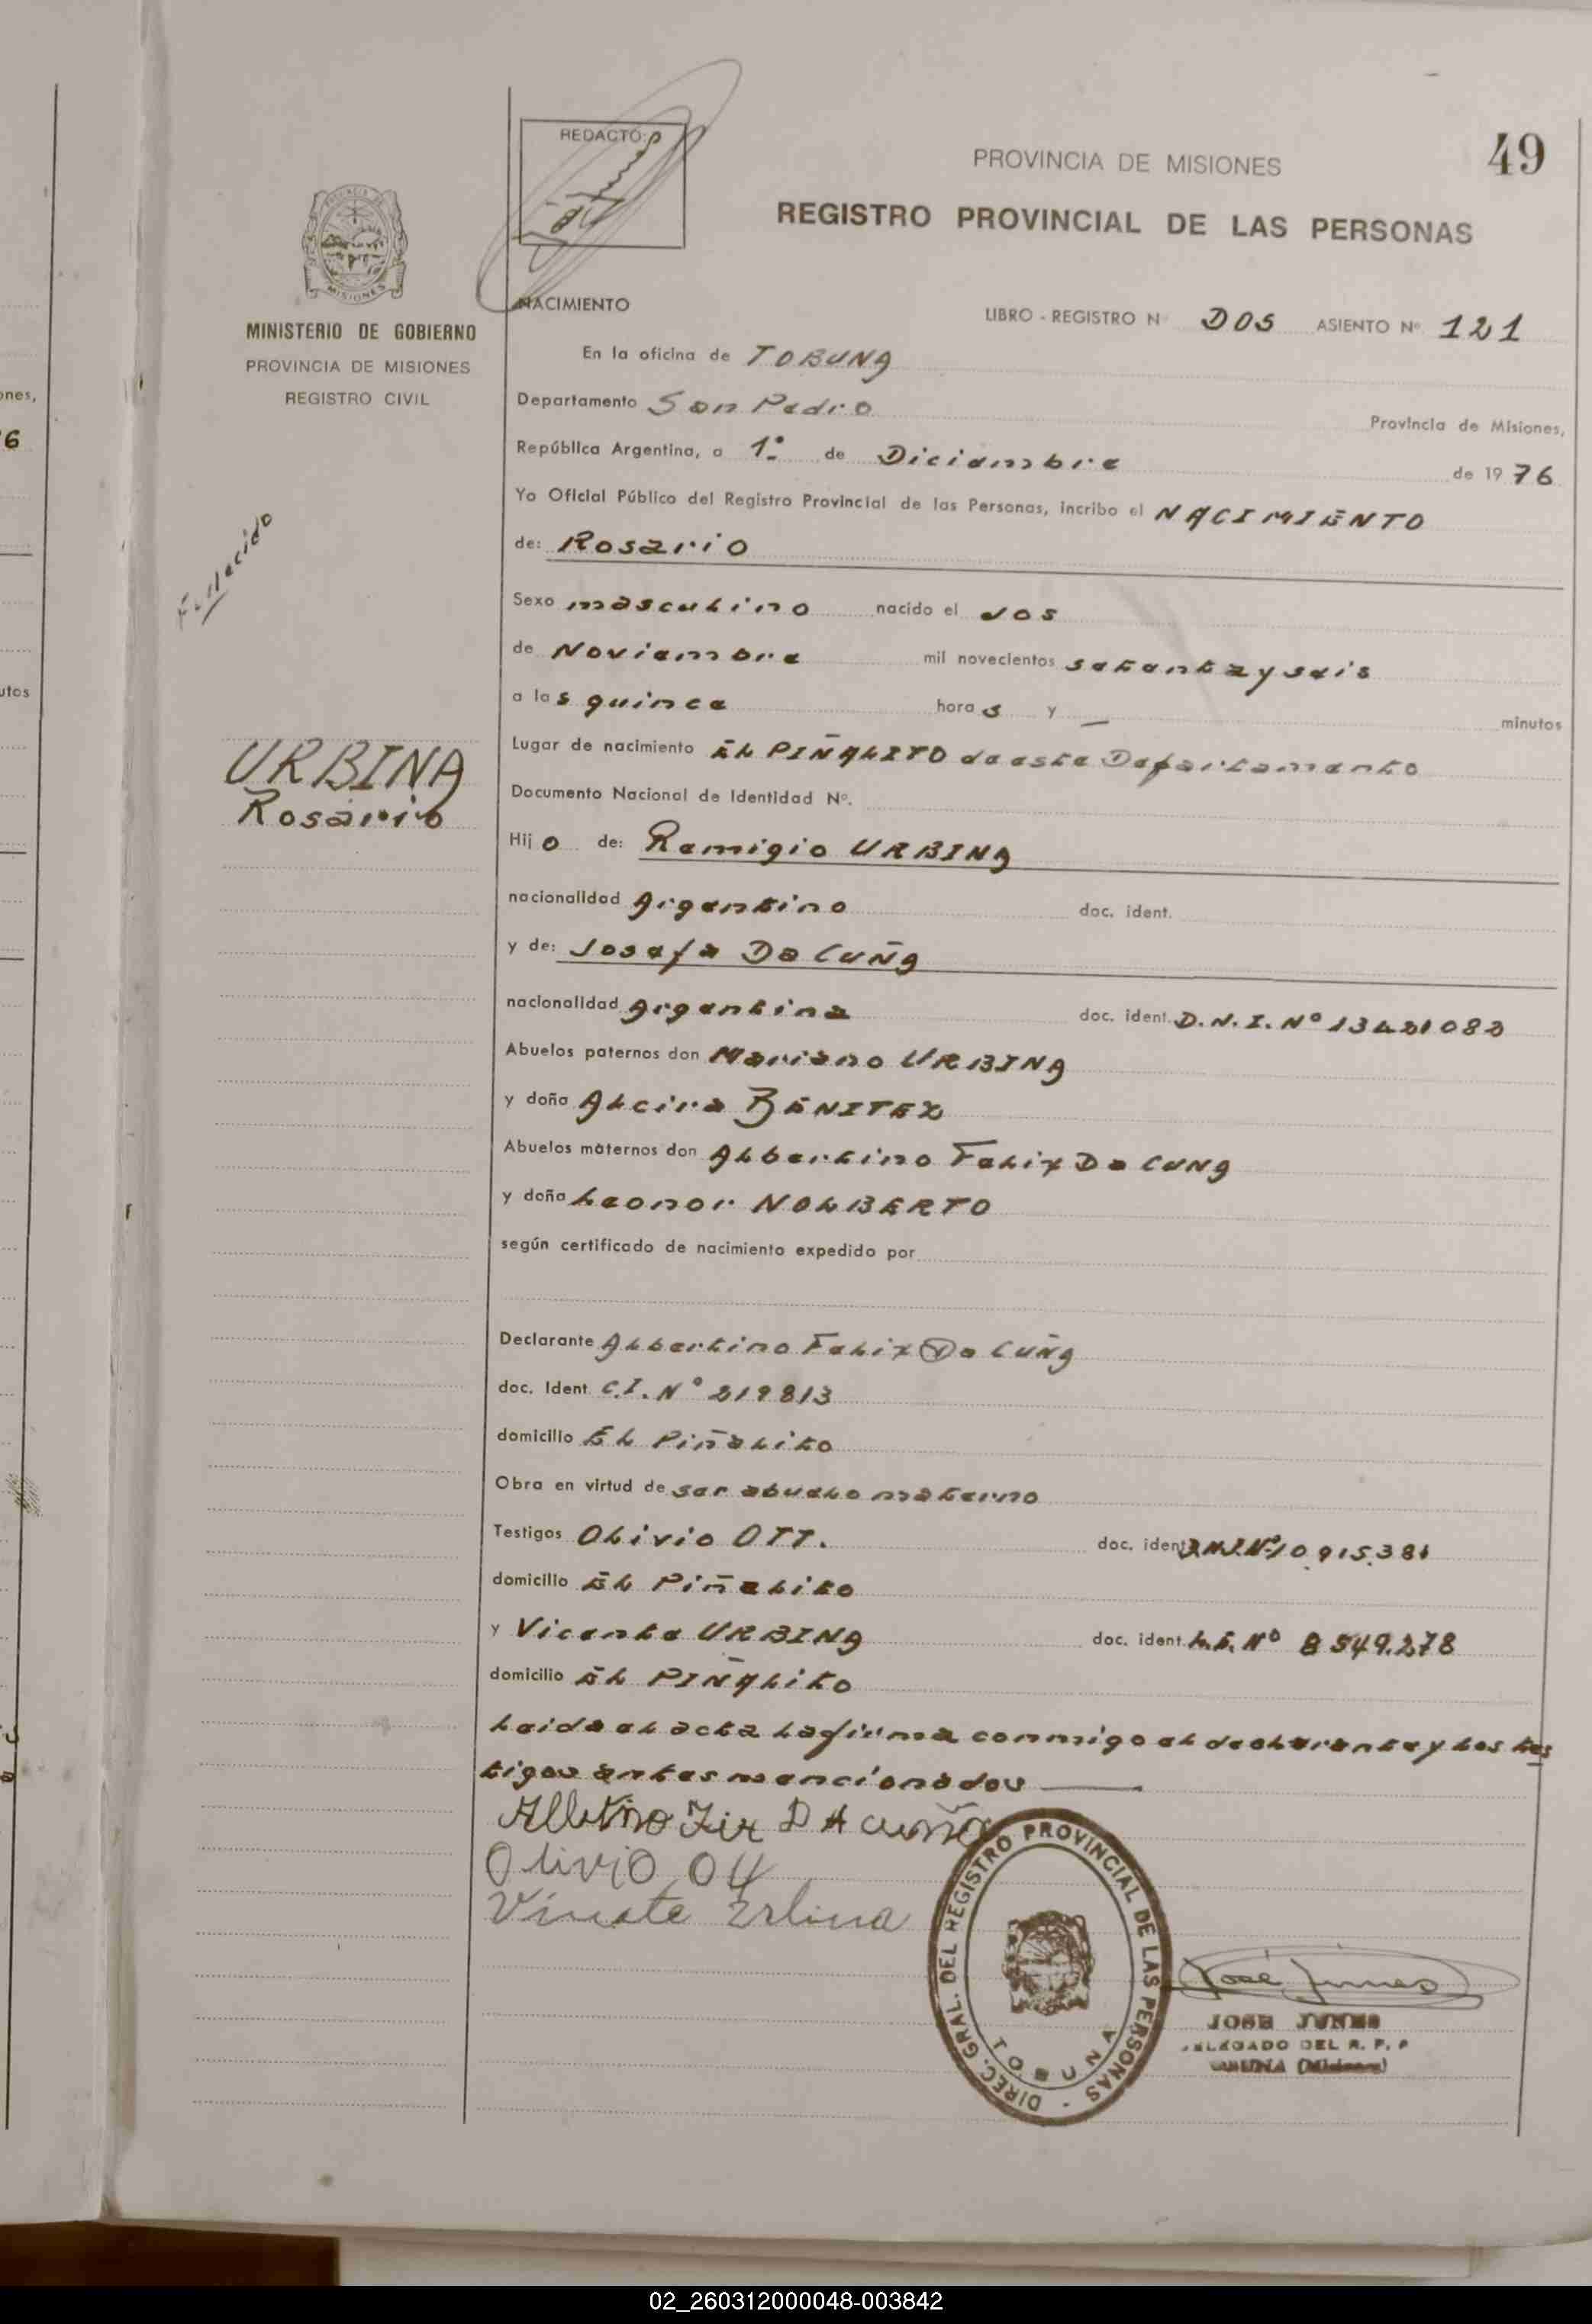 49
REDACTO:
PROVINCIA DE MISIONES
REGISTRO PROVINCIAL DE LAS PERSONAS
MISIONES
MINISTERIO DE GOBIERNO
PROVINCIA DE MISIONES
REGISTRO CIVIL
NACIMIENTO
LIBRO - REGISTRO N DOS ASIENTO Nº 121
En la oficina de TOBUNA
Departamento San Pedro Provincia de Misiones,
República Argentina, a 1º de Diciembre de 1976
Yo Oficial Público del Registro Provincial de las Personas, incribo el NACIMIENTO
de: Rosario
Fallecido
Sexo masculino nacido el dos
de Noviembre mil novecientos setenta y seis
a las quince horas y — minutos
Lugar de nacimiento EL PIÑALITO de este Departamento
URBINA
Rosario
Documento Nacional de Identidad Nº.
Hijo de: Remigio URBINA
nacionalidad Argentino doc. ident.
y de: Josefa Da CUÑA
nacionalidad Argentina doc. ident. D.N.I. Nº
Abuelos paternos don Mariano URBINA
y doña Alcira BENITEZ
Abuelos maternos don Albertino Felix Da CUNA
y doña Leonor NOLBERTO
según certificado de nacimiento expedido por
Declarante Albertino Felix Da CUÑA
doc. Ident. C.I. Nº 219813
domicilio El Piñalito
Obra en virtud de ser abuelo materno
Testigos Olivio OTT. doc. ident. D.N.I. Nº 10.915.381
domicilio El Piñalito
y Vicente URBINA doc. ident. L.E. Nº 8549.278
domicilio EL PIÑALITO
Leida el acta la firma conmigo el declarante y los tes
tigos antes mencionados —
Da cuña
Olivio Ott
Urbina
DIREC. GRAL. DEL REGISTRO PROVINCIAL DE LAS PERSONAS - TOBUNA
José Junes
JOSE JUNES
DELEGADO DEL R. P. P
TOBUNA (Misiones)
02_260312000048-003842